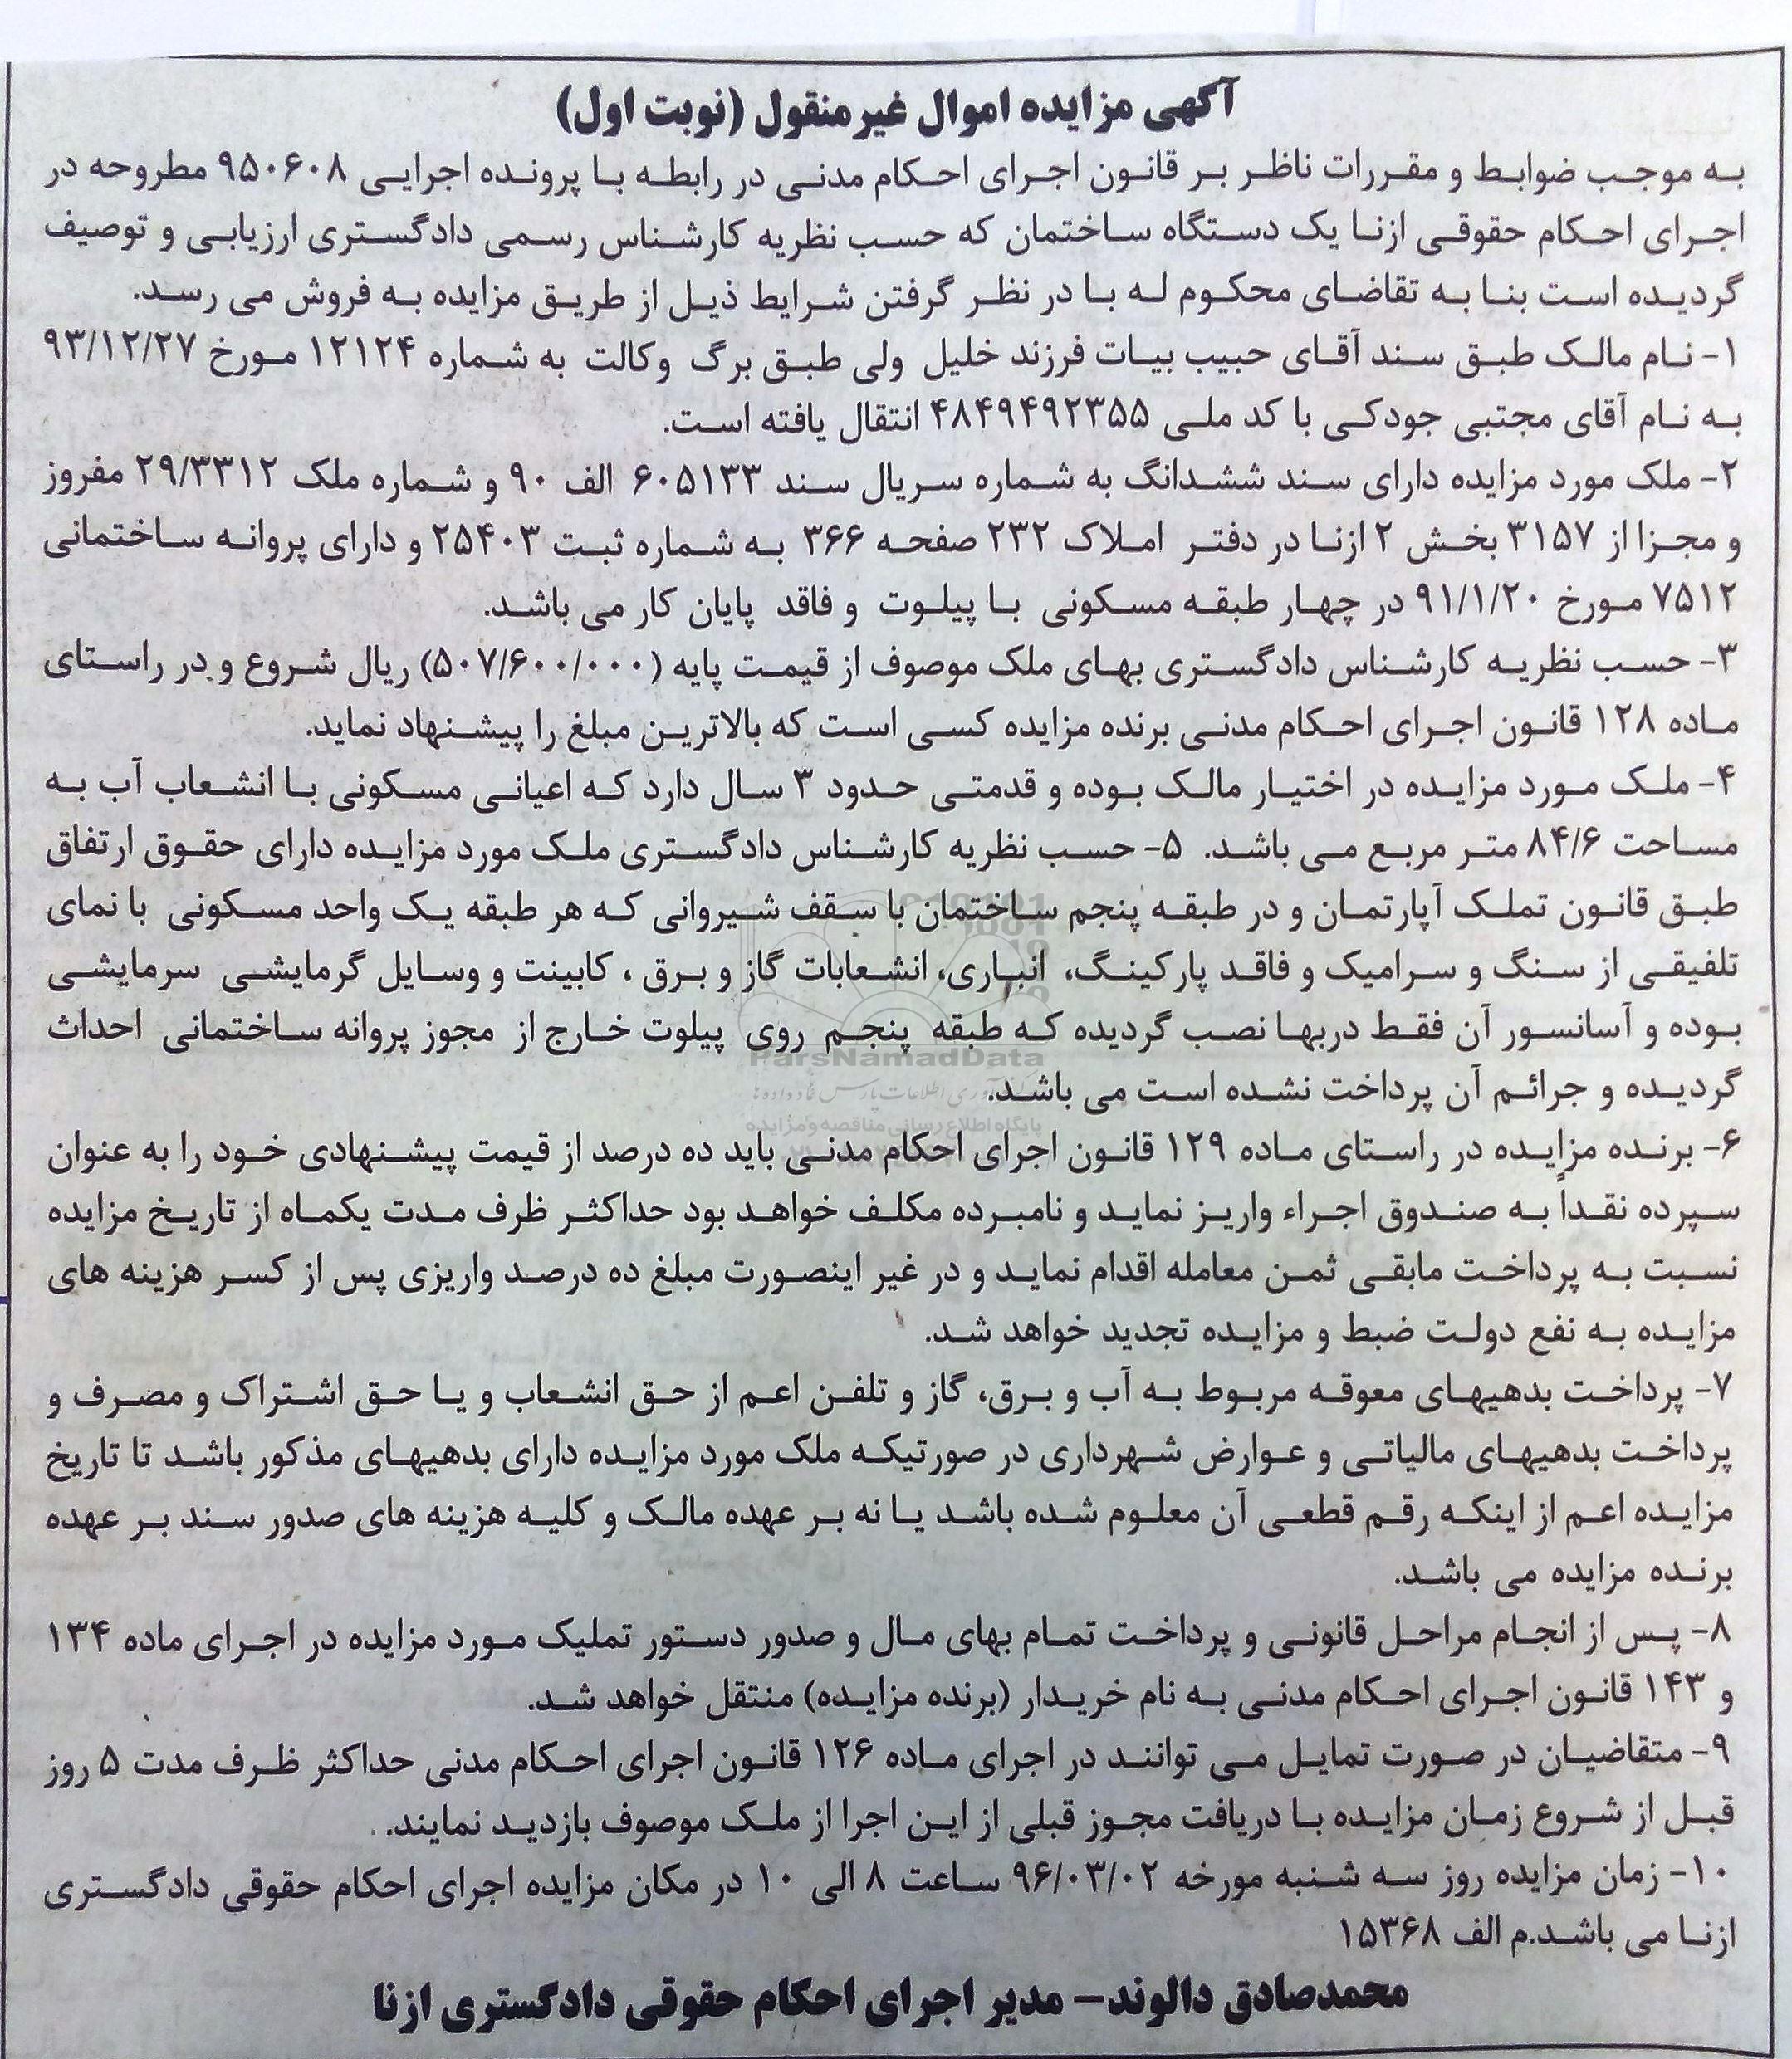 آگهی مزایده اموال غیرمنقول (نوبت اول)
به موجب ضوابط و مقررات ناظر بر قانون اجرای احکام مدنی در رابطه با پرونده اجرایی ۹۵۰۶۰۸ مطروحه در
اجرای احکام حقوقی ازنا یک دستگاه ساختمان که حسب نظریه کارشناس رسمی دادگستری ارزیابی و توصیف
گردیده است بنا به تقاضای محکوم له با در نظر گرفتن شرایط ذیل از طریق مزایده به فروش می رسد.
۱- نام مالک طبق سند آقای حبیب بیات فرزند خلیل ولی طبق برگ وکالت به شماره ۱۲۱۲۴ مورخ ۹۳/۱۲/۲۷
به نام آقای مجتبی جودکی با کد ملی ۴۸۴۹۴۹۲۳۵۵ انتقال یافته است.
۲- ملک مورد مزایده دارای سند ششدانگ به شماره سریال سند ۶۰۵۱۳۳ الف ۹۰ و شماره ملک ۲۹/۳۳۱۲ مفروز
و مجزا از ۳۱۵۷ بخش ۲ ازنا در دفتر املاک ۲۳۲ صفحه ۳۶۶ به شماره ثبت ۲۵۴۰۳ و دارای پروانه ساختمانی
۷۵۱۲ مورخ ۹۱/۱/۲۰ در چهار طبقه مسکونی با پیلوت و فاقد پایان کار می باشد.
۳- حسب نظریه کارشناس دادگستری بهای ملک موصوف از قیمت پایه (۵۰۷/۶۰۰/۰۰۰) ریال شروع و در راستای
ماده ۱۲۸ قانون اجرای احکام مدنی برنده مزایده کسی است که بالاترین مبلغ را پیشنهاد نماید.
۴- ملک مورد مزایده در اختیار مالک بوده و قدمتی حدود ۳ سال دارد که اعیانی مسکونی با انشعاب آب به
مساحت ۸۴/۶ متر مربع می باشد. ۵- حسب نظریه کارشناس دادگستری ملک مورد مزایده دارای حقوق ارتفاق
طبق قانون تملک آپارتمان و در طبقه پنجم ساختمان با سقف شیروانی که هر طبقه یک واحد مسکونی با نمای
تلفیقی از سنگ و سرامیک و فاقد پارکینگ، انباری، انشعابات گاز و برق ، کابینت و وسایل گرمایشی سرمایشی
بوده و آسانسور آن فقط دربها نصب گردیده که طبقه پنجم روی پیلوت خارج از مجوز پروانه ساختمانی احداث
ParsNamadData
گردیده و جرائم آن پرداخت نشده است می باشد.
پایگاه اطلاع رسانی مناقصه و مزایده
۶- برنده مزایده در راستای ماده ۱۲۹ قانون اجرای احکام مدنی باید ده درصد از قیمت پیشنهادی خود را به عنوان
سپرده نقداً به صندوق اجراء واریز نماید و نامبرده مکلف خواهد بود حداکثر ظرف مدت یکماه از تاریخ مزایده
نسبت به پرداخت مابقی ثمن معامله اقدام نماید و در غیر اینصورت مبلغ ده درصد واریزی پس از کسر هزینه های
مزایده به نفع دولت ضبط و مزایده تجدید خواهد شد.
۷- پرداخت بدهیهای معوقه مربوط به آب و برق، گاز و تلفن اعم از حق انشعاب و یا حق اشتراک و مصرف و
پرداخت بدهیهای مالیاتی و عوارض شهرداری در صورتیکه ملک مورد مزایده دارای بدهیهای مذکور باشد تا تاریخ
مزایده اعم از اینکه رقم قطعی آن معلوم شده باشد یا نه بر عهده مالک و کلیه هزینه های صدور سند بر عهده
برنده مزایده می باشد.
۸- پس از انجام مراحل قانونی و پرداخت تمام بهای مال و صدور دستور تملیک مورد مزایده در اجرای ماده ۱۳۴
و ۱۴۳ قانون اجرای احکام مدنی به نام خریدار (برنده مزایده) منتقل خواهد شد.
۹- متقاضیان در صورت تمایل می توانند در اجرای ماده ۱۲۶ قانون اجرای احکام مدنی حداکثر ظرف مدت ۵ روز
قبل از شروع زمان مزایده با دریافت مجوز قبلی از این اجرا از ملک موصوف بازدید نمایند.
۱۰- زمان مزایده روز سه شنبه مورخه ۹۶/۰۳/۰۲ ساعت ۸ الی ۱۰ در مکان مزایده اجرای احکام حقوقی دادگستری
ازنا می باشد.م الف ۱۵۳۶۸
محمدصادق دالوند- مدیر اجرای احکام حقوقی دادگستری ازنا